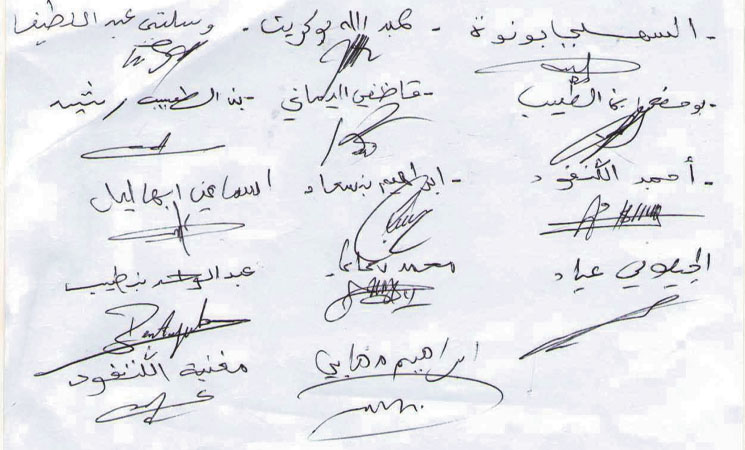 - السهلي بونوة - عبد الله بوكريت - وسلتي عبد اللطيف
- بن الطيب - قاظمي اليماني - بن الطيب رشيد
- أحمد الگنفود - ابراهيم بن سعاد اسماعيل ابهاليل
الجيلوني عياد محمد عبد الواحد بن طيب
ابراهيم وهابي مغنية الگنفود